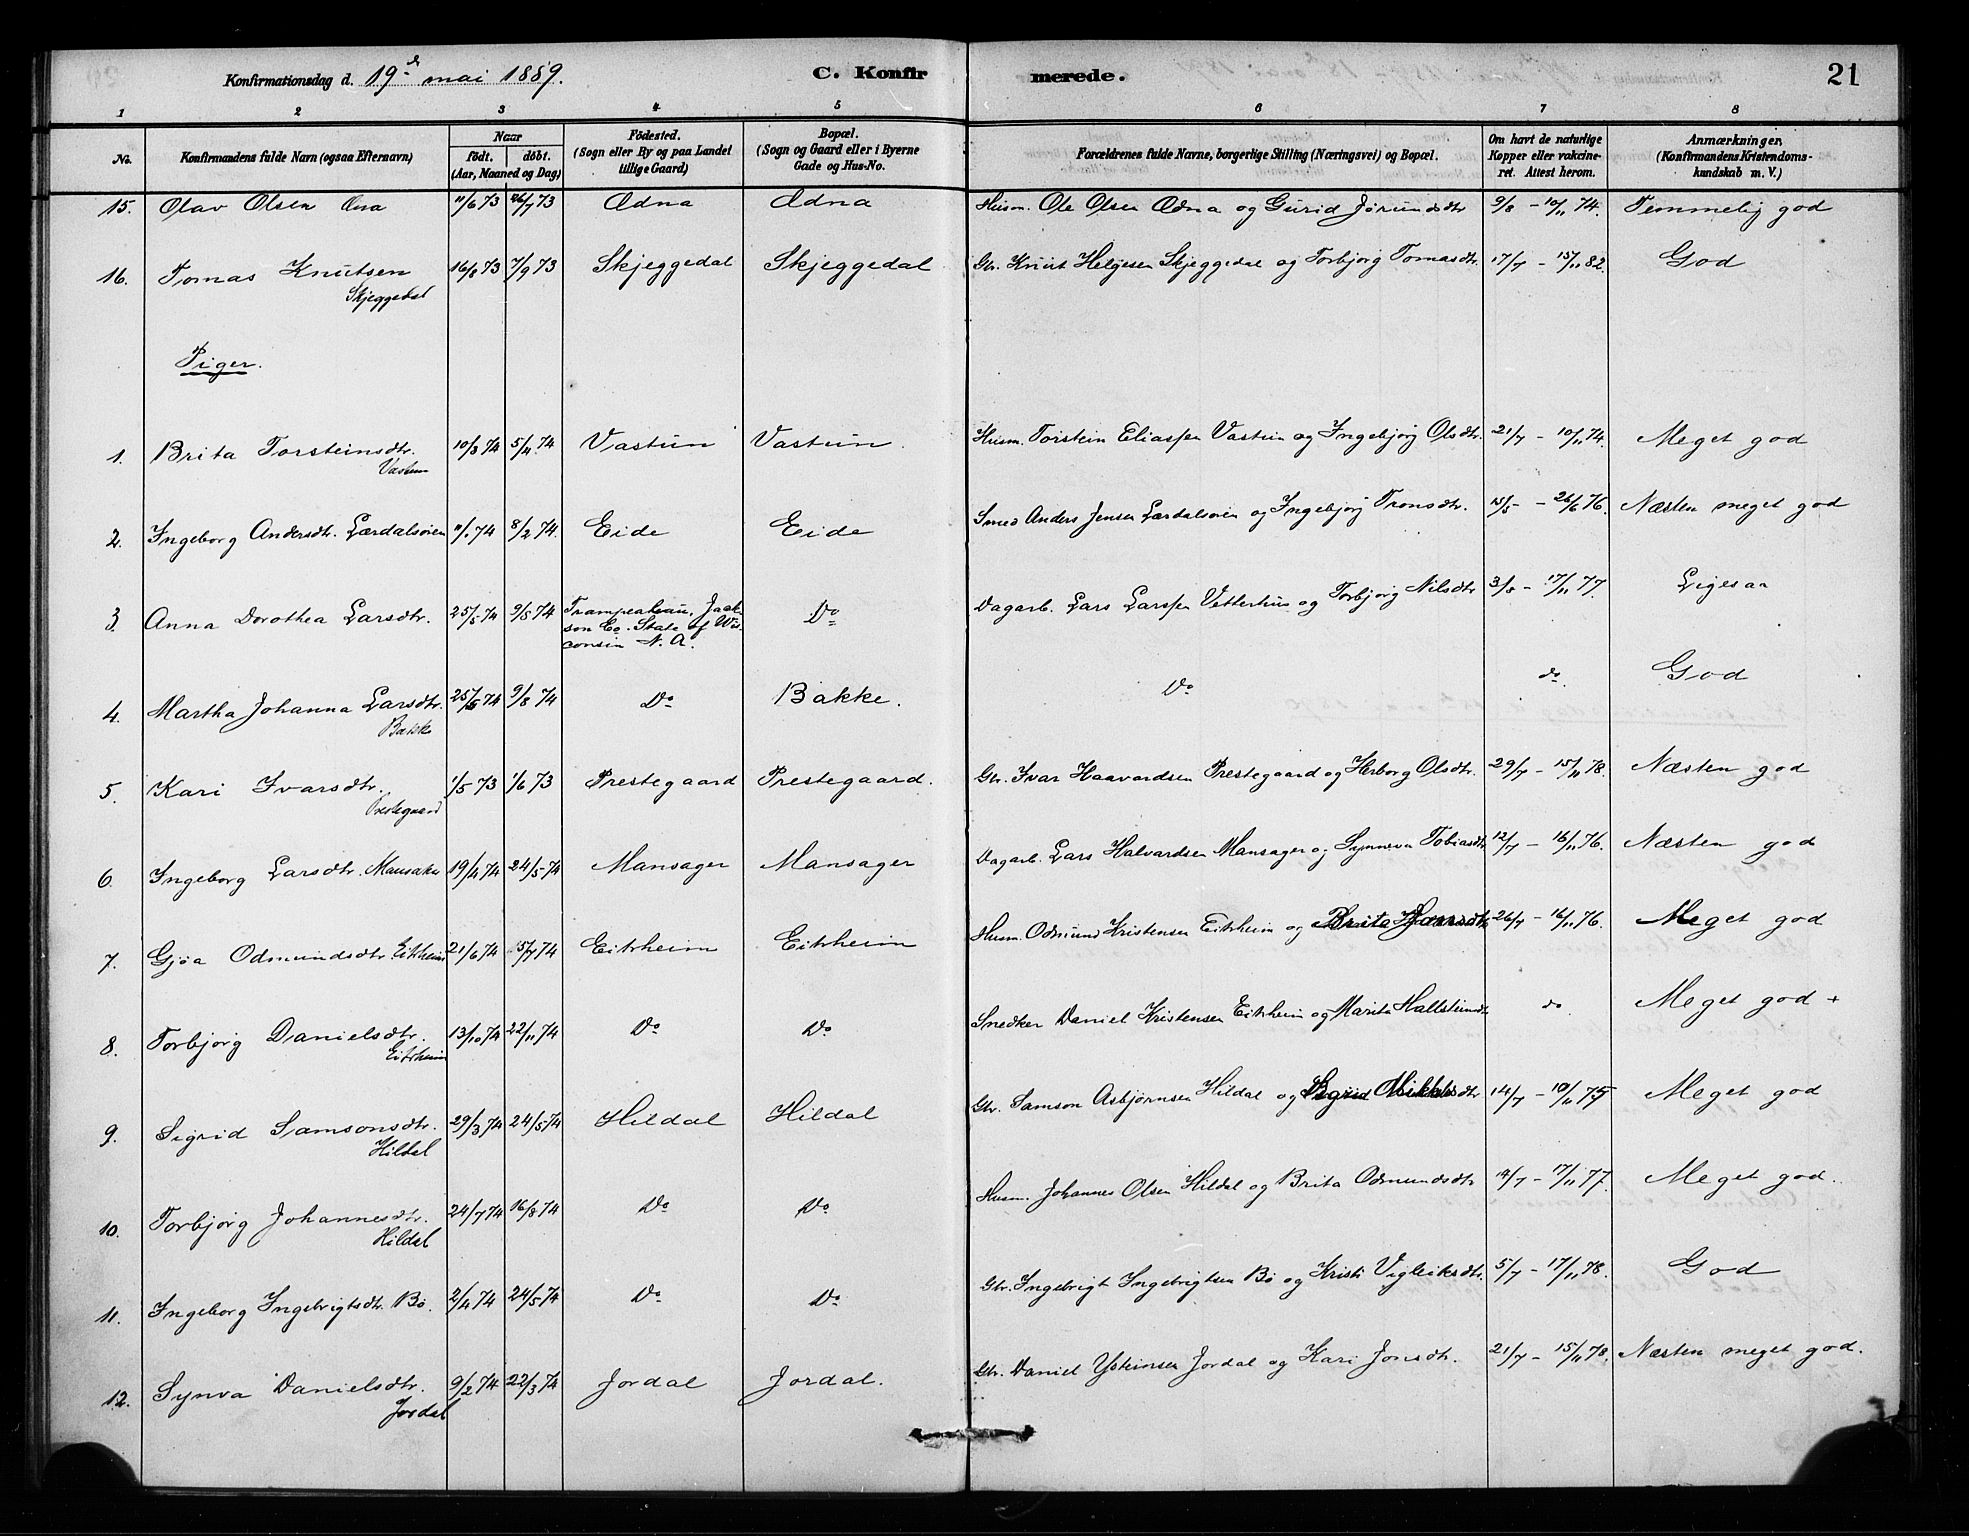 Konfirmationsdag d. 19de mai 1889. C. Konfirmerede. 21
1 2 3 4 5 6 7 8
No. Konfirmandens fulde Navn (ogsaa Efternavn) Naar født. døbt. (Aar, Maaned og Dag) Fødested. (Sogn eller By og paa Landet tillige Gaard) Bopæl. (Sogn og Gaard eller i Byerne Gade og Hus-No. Forældrenes fulde Navne, borgerlige Stilling (Næringsvei) og Bopæl. Om havt de naturlige Kopper eller vakcineret. Attest herom. Anmærkninger, (Konfirmandens Kristendomskundskab m. V.)
15. Olav Olsen 11/6 73 26/7 73 Ædna Ædna Husm. Ole Olsen Ædna og Gurid Jørundsdtr 9/8 - 10/11 74. Temmelig god
16. Tomas Knutsen Skjeggedal 16/8 73 7/9 73 Skjeggedal Skjeggedal Gbr. Knut Helgesen Skjeggedal og Torbjørg Tomasdtr. 17/7 - 15/11 82. God
Piger.
1. Brita Torsteinsdtr. Vastun 10/3 74 5/4 74 Vastun Vastun. Husm. Torstein Eliassen Vastun og Ingebjørg Olsdtr. 21/7 - 10/11 74. Meget god
2. Ingeborg Andersdtr. Lærdalsøren 11/1 74 8/2 74. Eide Eide Smed Anders Jensen Lærdalsøren og Ingebjørg Tronsdtr. 15/5 - 26/6 76. Næsten meget god
3. Anna Dorothea Larsdtr. 25/5 74 9/8 74 Trampealeau, Jackson Co. State of Wisconsin N. A. Do Dagarb. Lars Larssen Vetterhus og Torbjørg Nilsdtr 3/8 - 17/11 77. Ligesaa
4. Martha Johanna Larsdtr. Bakke 25/5 74 9/8 74 Do Bakke. Do do. God
5. Kari Ivarsdtr. Prestegaard 1/5 73 1/6 73 Prestegaard Prestegaard. Gbr. Ivar Haavardsen Prestegaard og Herborg Olsdtr. 29/7 - 15/11 78. Næsten god
6. Ingeborg Larsdtr. Mansaker 19/4 74 24/5 74 Mansager Mansager Dagarb. Lars Halvardsen Mansager og Synneva Tobiasdtr 12/7 - 16/11 76. Næsten god
7. Gjøa Odmundsdtr. Eitrheim 21/6 74 5/7 74 Eitrheim Eitrheim Husm. Odmund Kristensen Eitrheim og Brita 26/7 - 16/11 76. Meget god
8. Torbjørg Danielsdtr. Eitrheim 13/10 74 22/11 74 Do Do Snedker Daniel Kristensen Eitrheim og Marita Hallsteinsdtr do Meget god +
9. Sigrid Samsonsdtr. Hildal 29/3 74 24/5 74 Hildal Hildal Gbr. Samson Asbjørnsen Hildal og Sigrid 14/7 - 10/11 75 Meget god
10. Torbjørg Johannesdtr. Hildal 24/7 74 16/8 74 Do Do Husm. Johannes Olsen Hildal og Brita Odmundsdtr 14/7 - 17/11 77. Meget god.
11. Ingeborg Ingebrigtsdtr. Bø. 2/4 74 24/5 74 Do Do Gbr. Ingebrigt Ingebrigtsen Bø og Kristi Vigleiksdtr. 5/7 - 17/11 78. God
12. Synva Danielsdtr. Jordal 9/2 74 22/3 74 Jordal Jordal. Gbr. Daniel Ysteinsen Jordal og Kari Jonsdtr. 21/7 - 15/11 78. Næsten meget god.